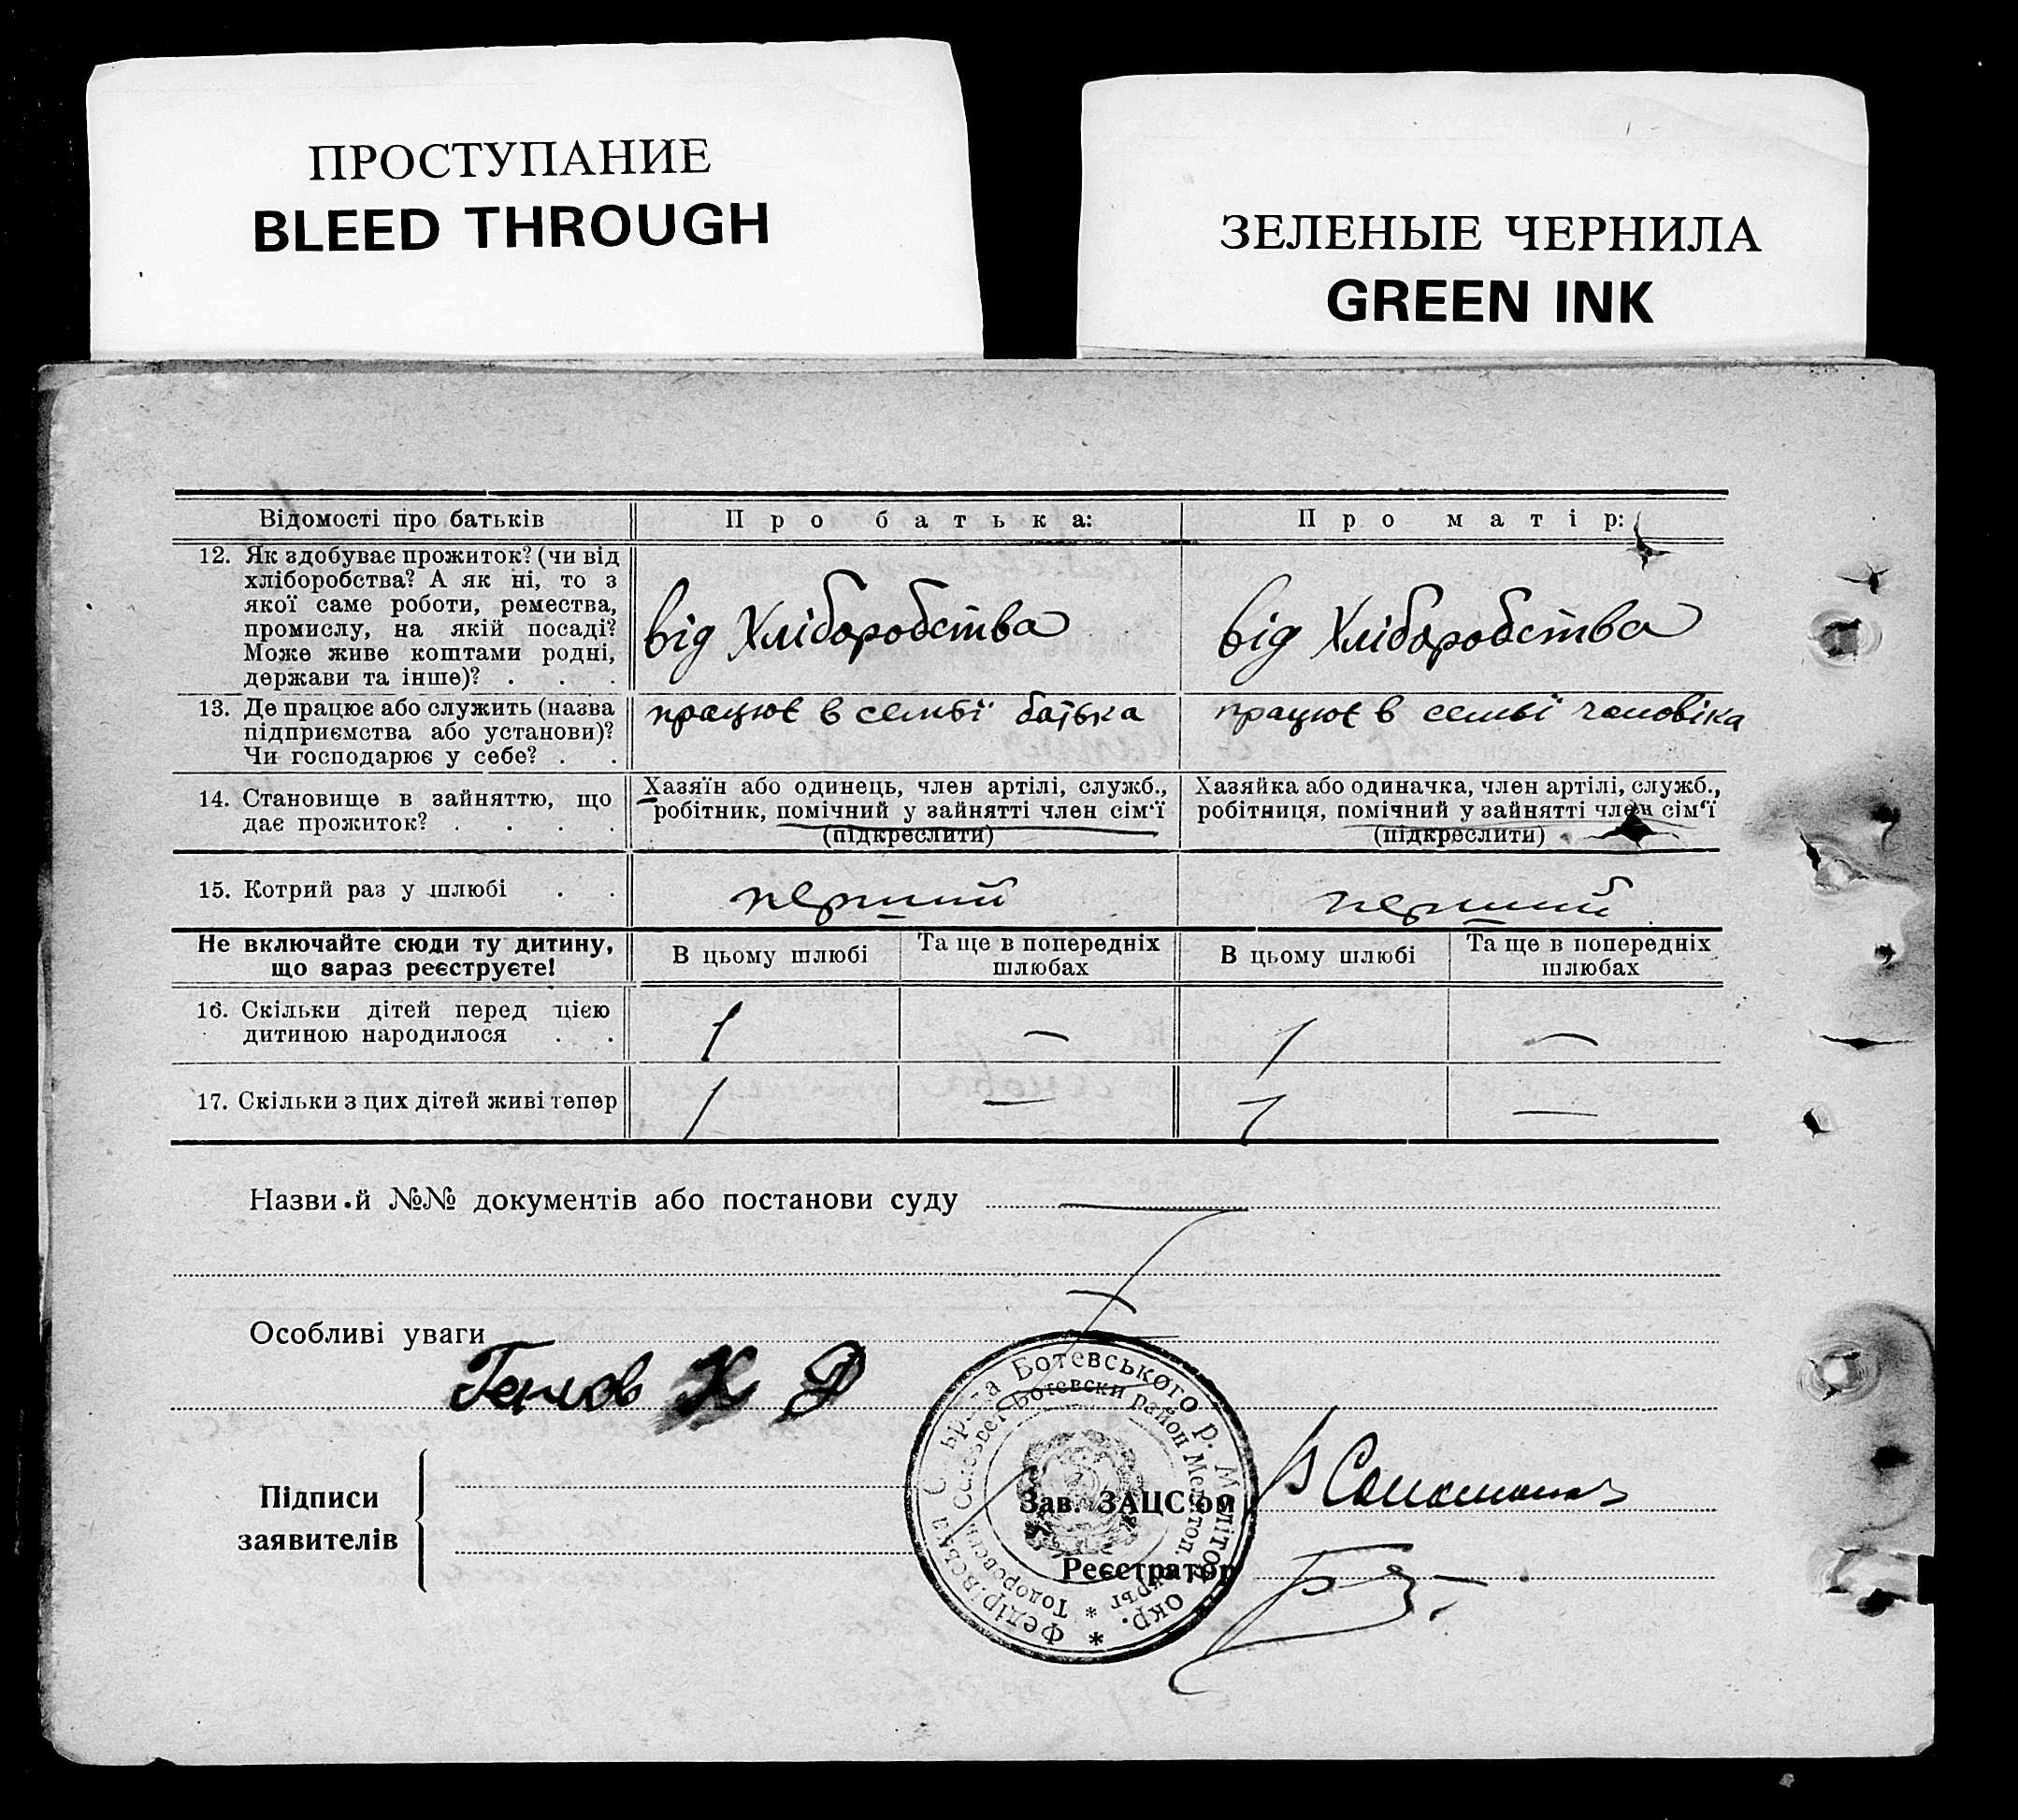 ПРОСТУПАНИЕ
BLEED THROUGH
ЗЕЛЕНЫЕ ЧЕРНИЛА
GREEN INK
Відомості про батьків
Про батька:
Про матір:
12. Як здобуває прожиток? (чи від
хліборобства? А як ні, то з
якої саме роботи, ремества,
промислу, на якій посаді?
Може живе коштами родні,
держави та інше)? . . .
від Хліборобства
від Хліборобства
13. Де працює або служить (назва
підприємства або установи)?
Чи господарює у себе? . .
працює в семьї батька
працює в семьї чоловіка
14. Становище в зайняттю, що
дає прожиток? . . . .
Хазяїн або одинець, член артілі, служб.,
робітник, помічний у зайнятті член сім'ї
(підкреслити)
Хазяйка або одиначка, член артілі, служб.,
робітниця, помічний у зайнятті член сім'ї
(підкреслити)
15. Котрий раз у шлюбі . .
перший
перший
Не включайте сюди ту дитину,
що зараз реєструєте!
В цьому шлюбі
Та ще в попередніх
шлюбах
В цьому шлюбі
Та ще в попередніх
шлюбах
16. Скільки дітей перед цією
дитиною народилося . .
1
—
1
—
17. Скільки з цих дітей живі тепер
1
—
1
—
Назви й №№ документів або постанови суду
Особливі уваги
Генов Х Д
Підписи
заявителів
Зав. ЗАЦС'ом
Реєстратор
Федорівська Сільрада Ботевського р. Мелітоп. окр. *
Тодоровски Селсъвет Ботевски район Мелитоп. окръг *